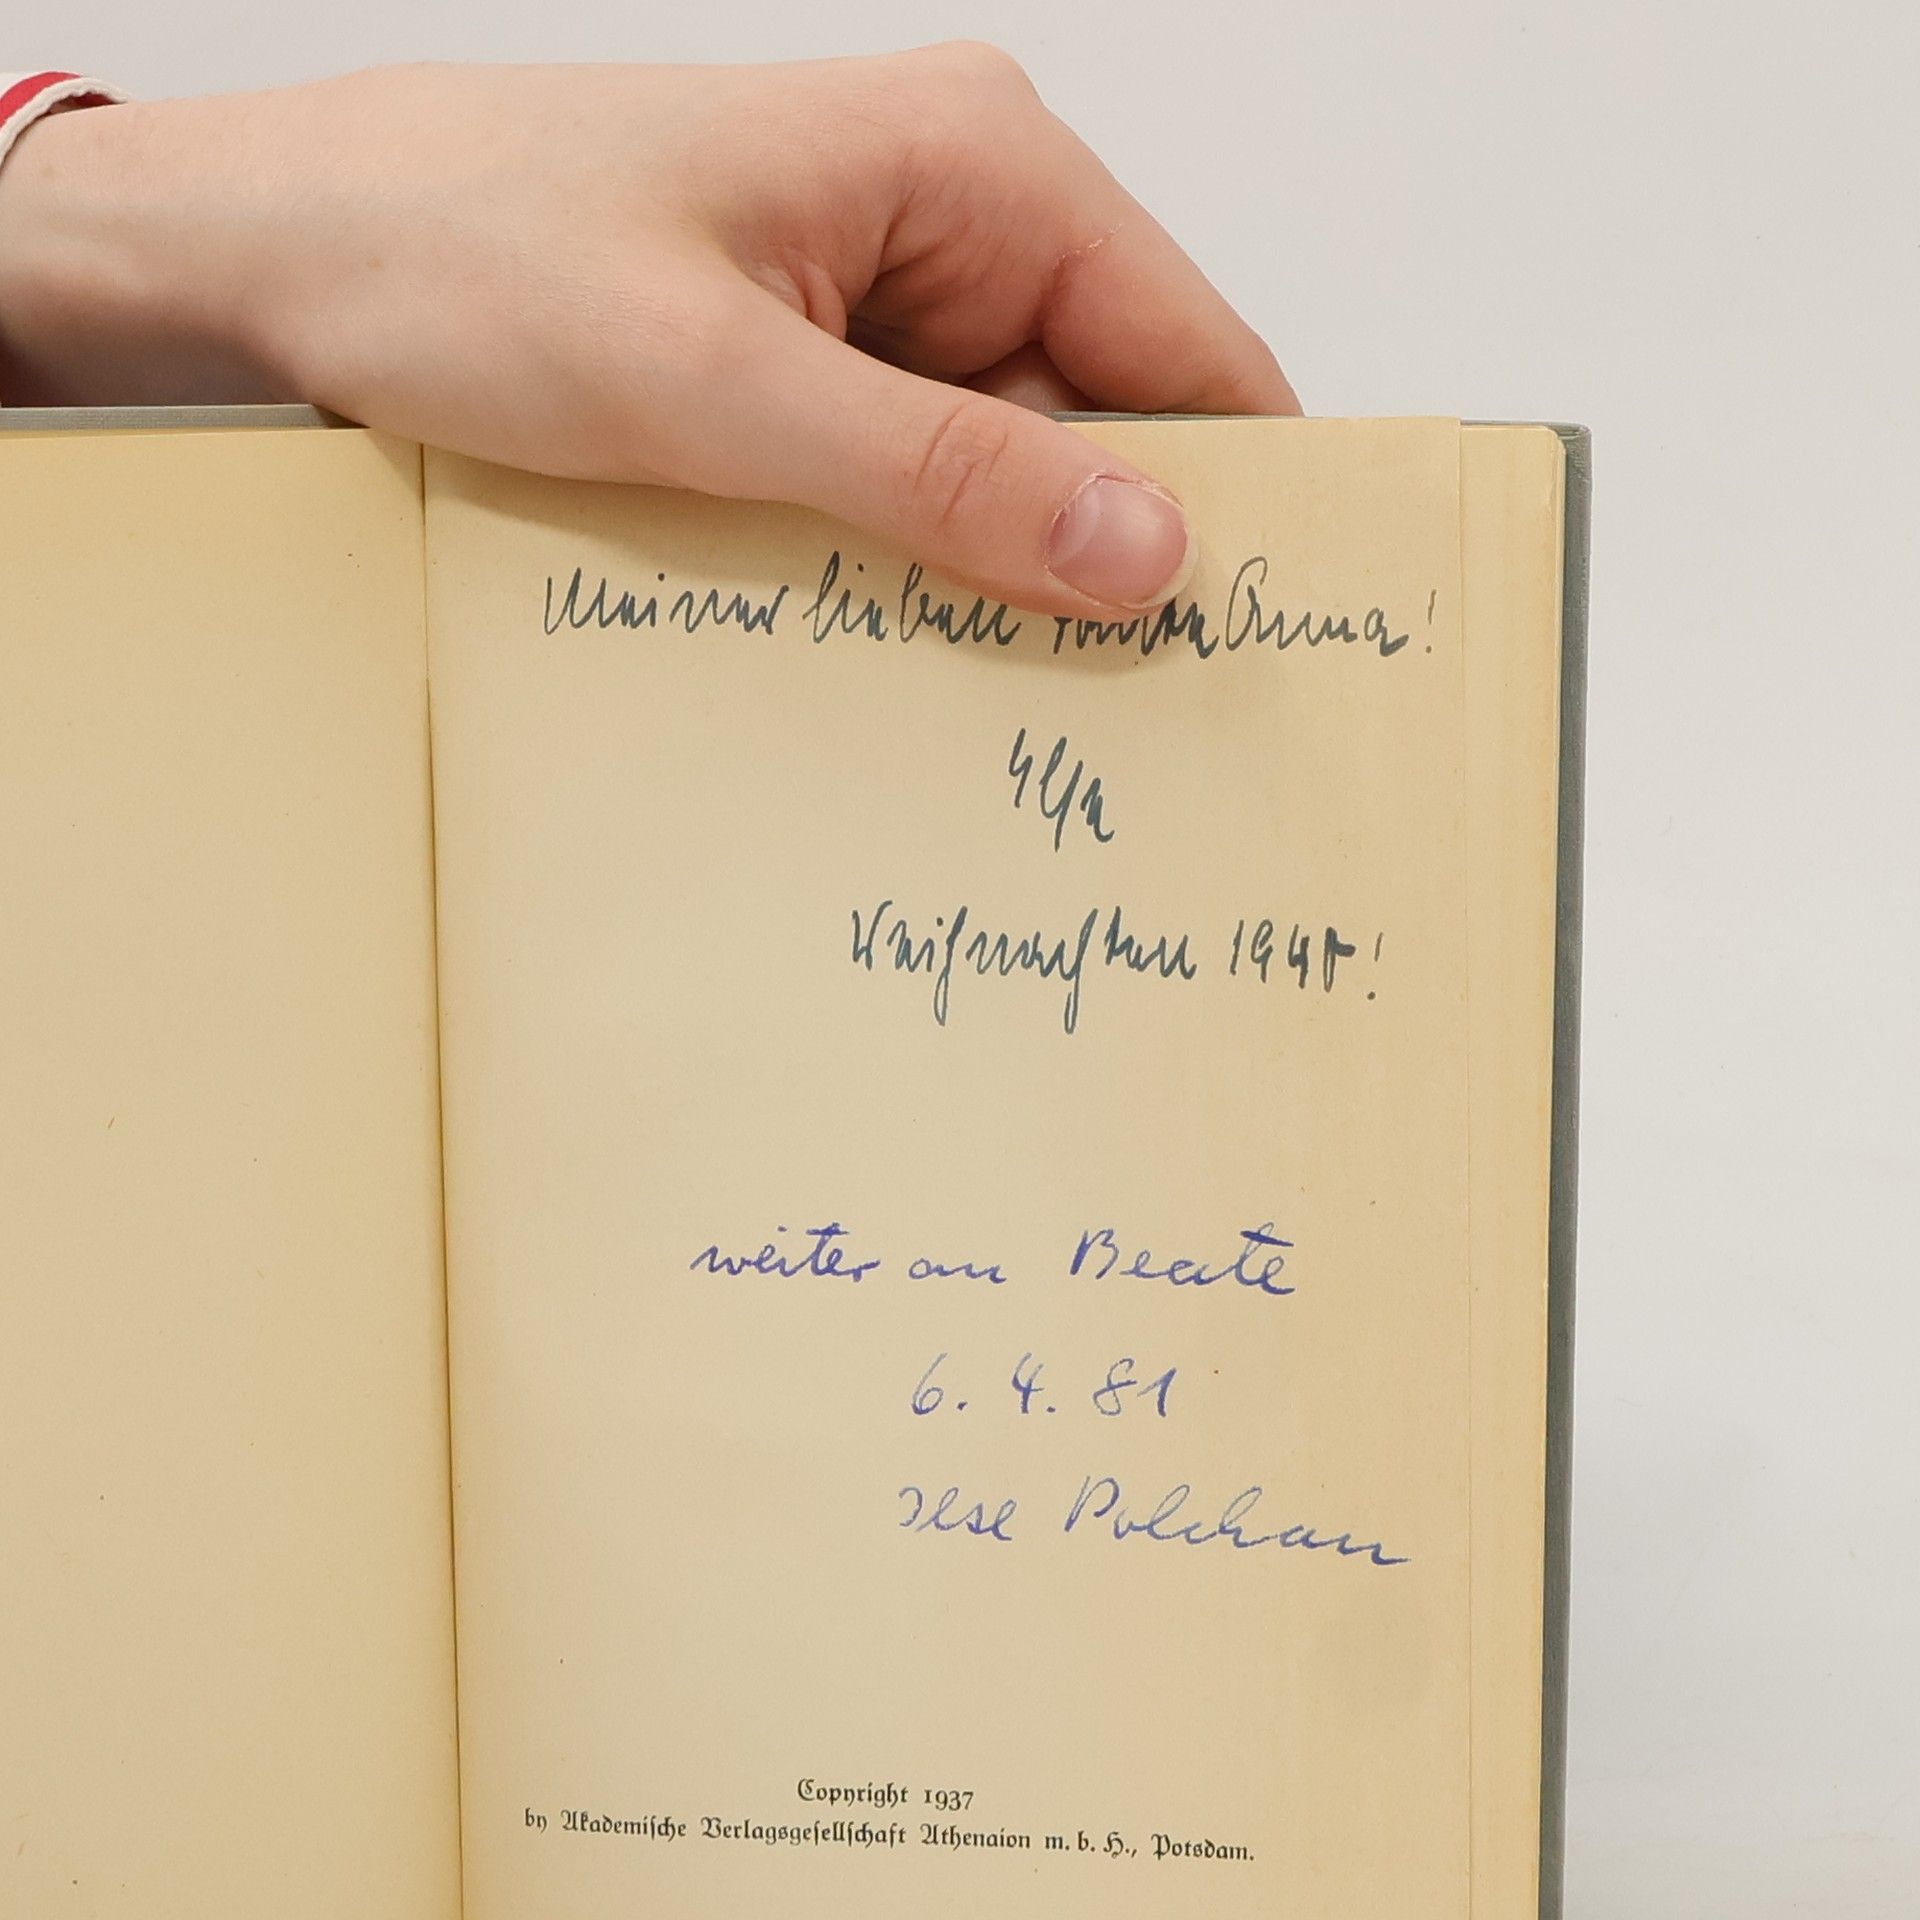 Meiner lieben Tante Anna!
Ilse
Weihnachten
weiter an Beate
6. 4. 81
Ilse
Copyright 1937
by Akademische Verlagsgesellschaft Athenaion m. b. H., Potsdam.